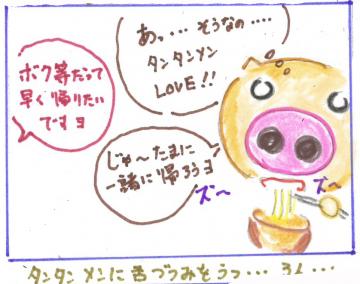 あっ・・・ そうなの・・・・
タンタンメン
LOVE!!
ボク等だって
早く帰りたい
ですヨ
じゅ〜たまに
一緒に帰ろうヨ
ズ〜
ズ〜
タンタンメンに舌づつみをうつ・・・ 31・・・